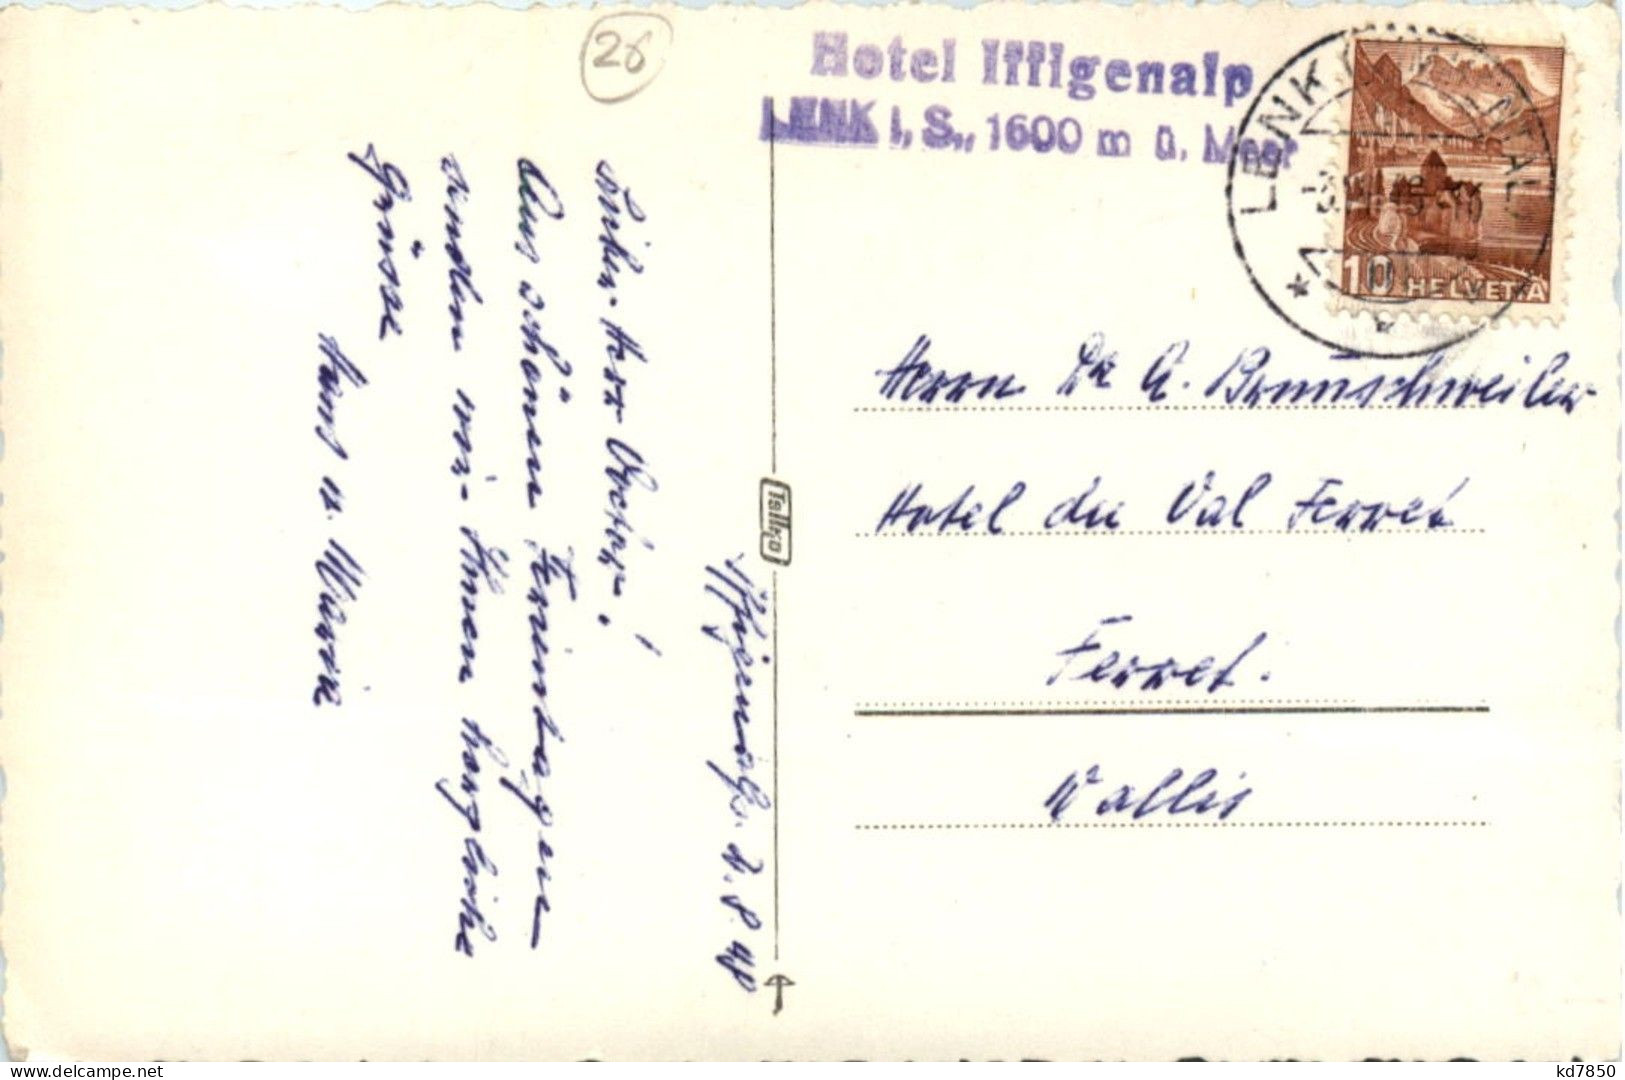 26
Hotel Iffigenalp
LENK i. S., 1600 m ü. Meer
LENK
10 HELVETIA
Iffigenalp. 2. 8. 48
Lieber Herr Doctor!
Aus schönen Ferientagen
senden wir Ihnen herzliche
Grüsse
Hans u. Marie
Tellko
Herrn Dr. A. Brunschweiler
Hotel du Val Ferret
Ferret.
Wallis
kd7850